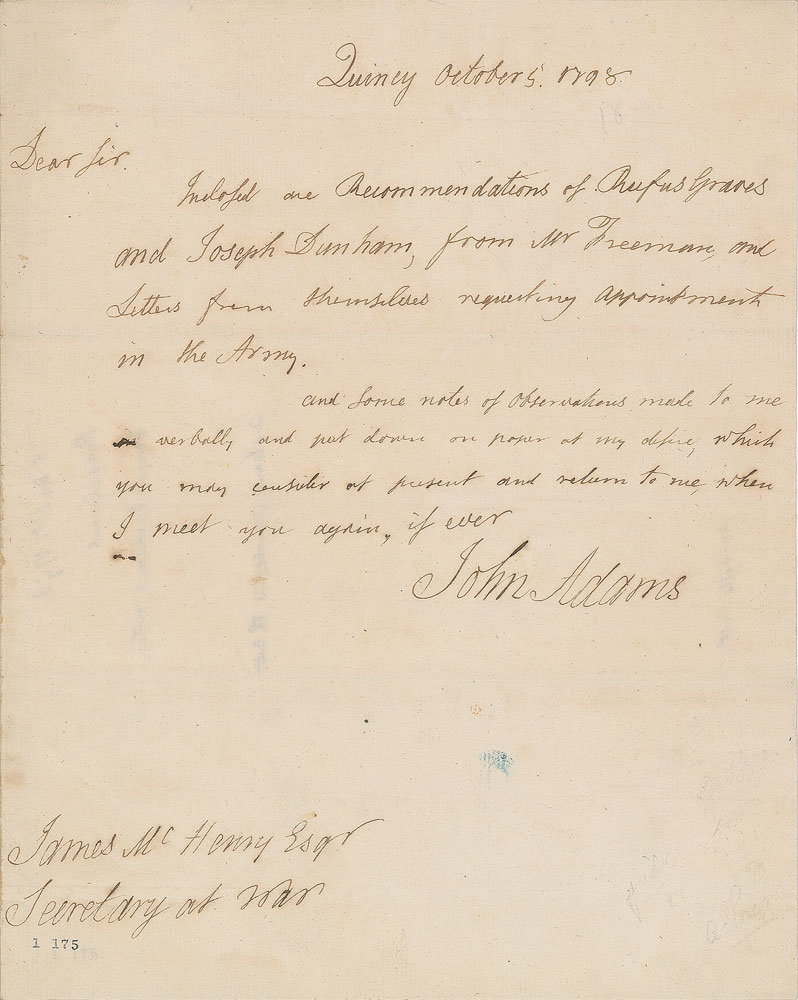 Quincy October 5. 1798
Dear Sir.
Inclosed are Recommendations of Rufus Graves
and Joseph Dunham, from Mr Freeman, and
Letters from themselves requesting appointment
in the Army.
and some notes of observations made to me
verbally and put down on paper at my desire, which
you may consider at present and return to me, when
I meet you again, if ever
John Adams
James Mc Henry Esqr
Secretary at War
1 175